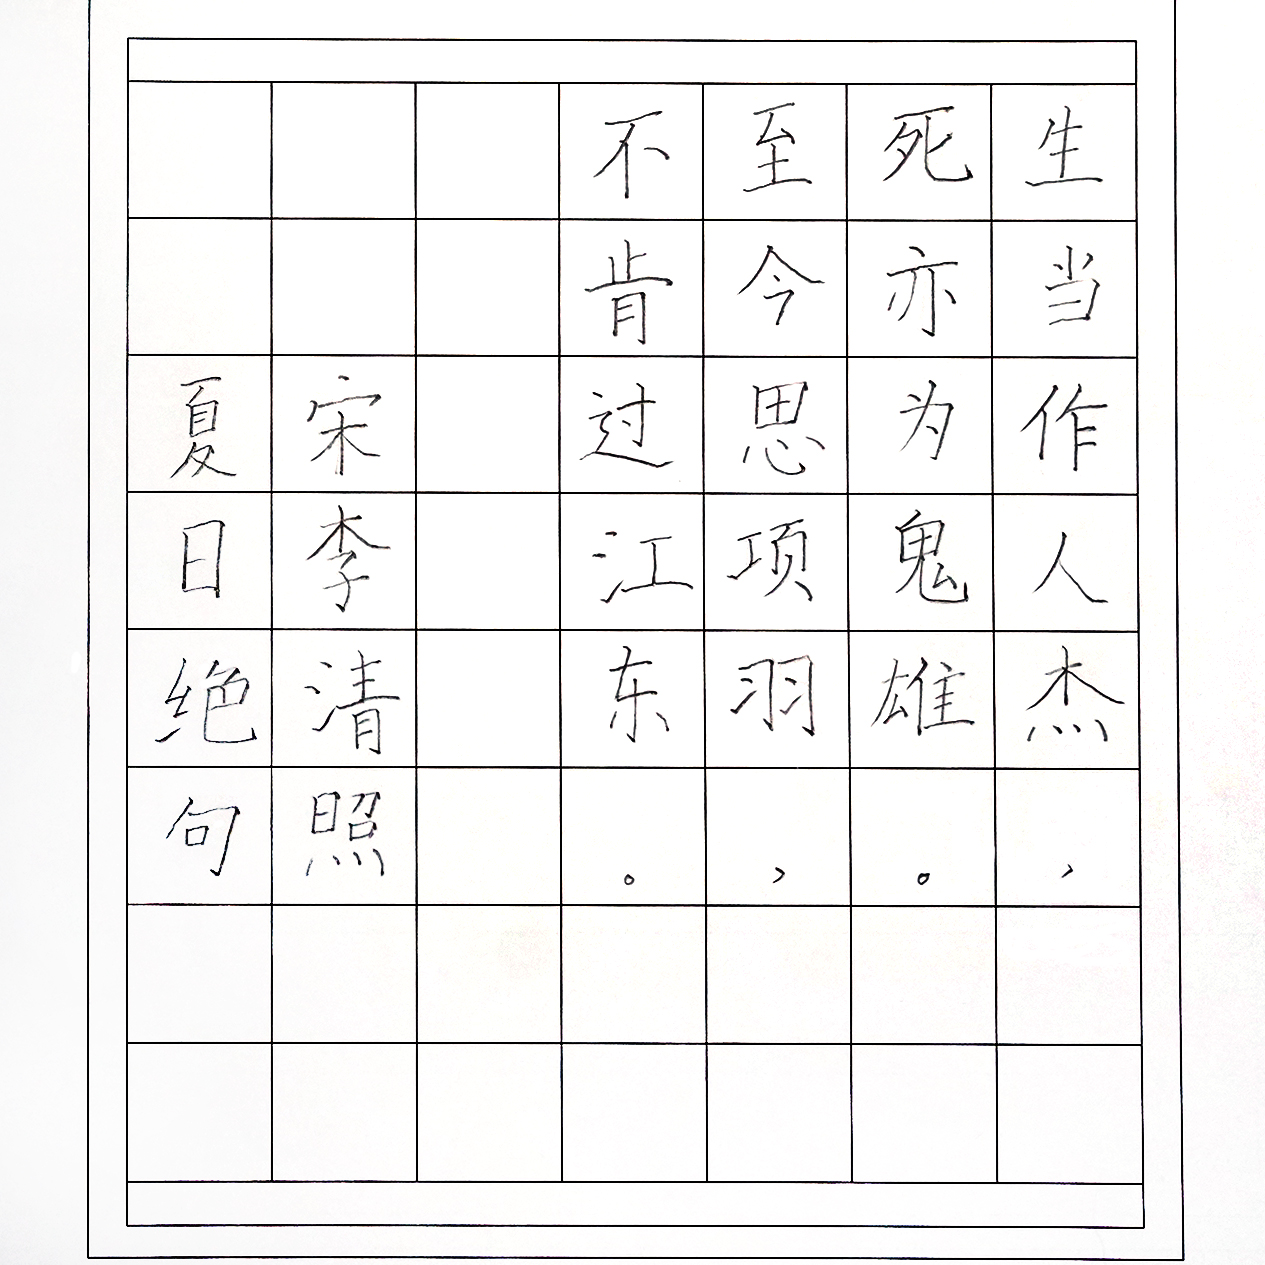 生当作人杰，
死亦为鬼雄。
至今思项羽，
不肯过江东。
宋李清照
夏日绝句